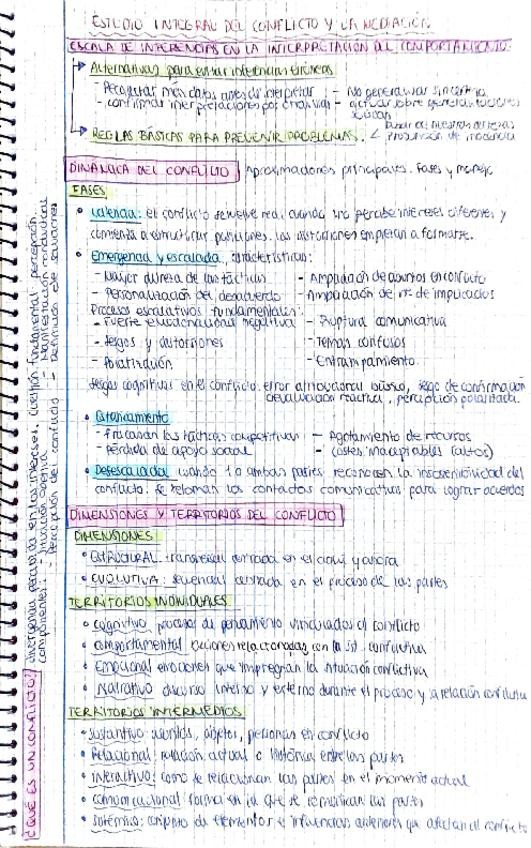 ESTUDIO INTEGRAL DEL CONFLICTO Y LA MEDIACIÓN
ESCALA DE INFERENCIAS EN LA INTERPRETACIÓN DEL COMPORTAMIENTO:
Alternativas para evitar inferencias erróneas
- Recopilar más datos antes de interpretar - No generalizar sin certeza
- confirmar interpretaciones por otras vías - actuar sobre generalizaciones
REGLAS BÁSICAS PARA PREVENIR PROBLEMAS. < Dudar de nuestras certezas
Presunción de inocencia
DINÁMICA DEL CONFLICTO Aproximaciones principales. Fases y manejo
FASES
• Latencia: el conflicto se vuelve real cuando uno percibe intereses diferentes y
comienza a estructurar posiciones. Las distorsiones empiezan a formarse.
• Emergencia y escalada. características:
- Mayor dureza de las tácticas - Ampliación de asuntos en conflicto
- Personalización del desacuerdo - Ampliación de nº de implicados
Procesos escalativos fundamentales:
- Fuerte emocionalidad negativa - Ruptura comunicativa
- sesgos y distorsiones - Temas confusos
- Polarización - Entrampamiento.
sesgos cognitivos en el conflicto: error atribucional básico, sesgo de confirmación
devaluación reactiva, percepción polarizada.
• Estancamiento
- fracasan las tácticas competitivas - Agotamiento de recursos
- pérdida de apoyo social - costes inaceptables (altos)
• Desescalada cuando 1 o ambas partes reconocen la insostenibilidad del
conflicto. Se retoman los contactos comunicativos para lograr acuerdos
DIMENSIONES Y TERRITORIOS DEL CONFLICTO
DIMENSIONES
• ESTRUCTURAL: transversal centrada en el aquí y ahora
• EVOLUTIVA: secuencial centrada en el proceso de las partes
TERRITORIOS INDIVIDUALES
• cognitivo procesos de pensamiento vinculados al conflicto
• comportamental acciones relacionadas con la sit. conflictiva
• Emocional emociones que impregnan la situación conflictiva
• Narrativo discurso interno y externo durante el proceso y la relación conflictiva
TERRITORIOS INTERMEDIOS
• sustantivo: asuntos, objetos, personas en conflicto
• Relacional: relación actual o histórica entre las partes
• interactivo: como se relacionan las partes en el momento actual
• comunicacional forma en la que se comunican las partes
• sistémico: conjunto de elementos e influencias exteriores que afectan al conflicto
¿QUÉ ES UN CONFLICTO? divergencia percibida en los intereses. cuestión fundamental: percepción.
componentes: - situación objetiva - Manifestación conductual
- Percepción del conflicto - Definición de soluciones